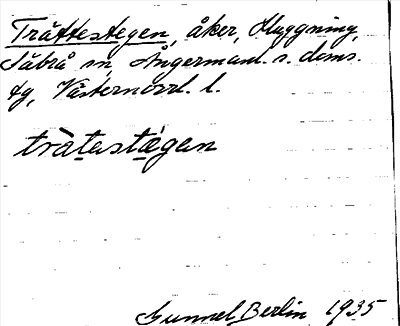 Trättestegen, åker, Huggning,
Säbrå sn, Ångermanl. s. doms.
tg, Västernorrl. l.
trätestägen
Gunnel Berlin 1935